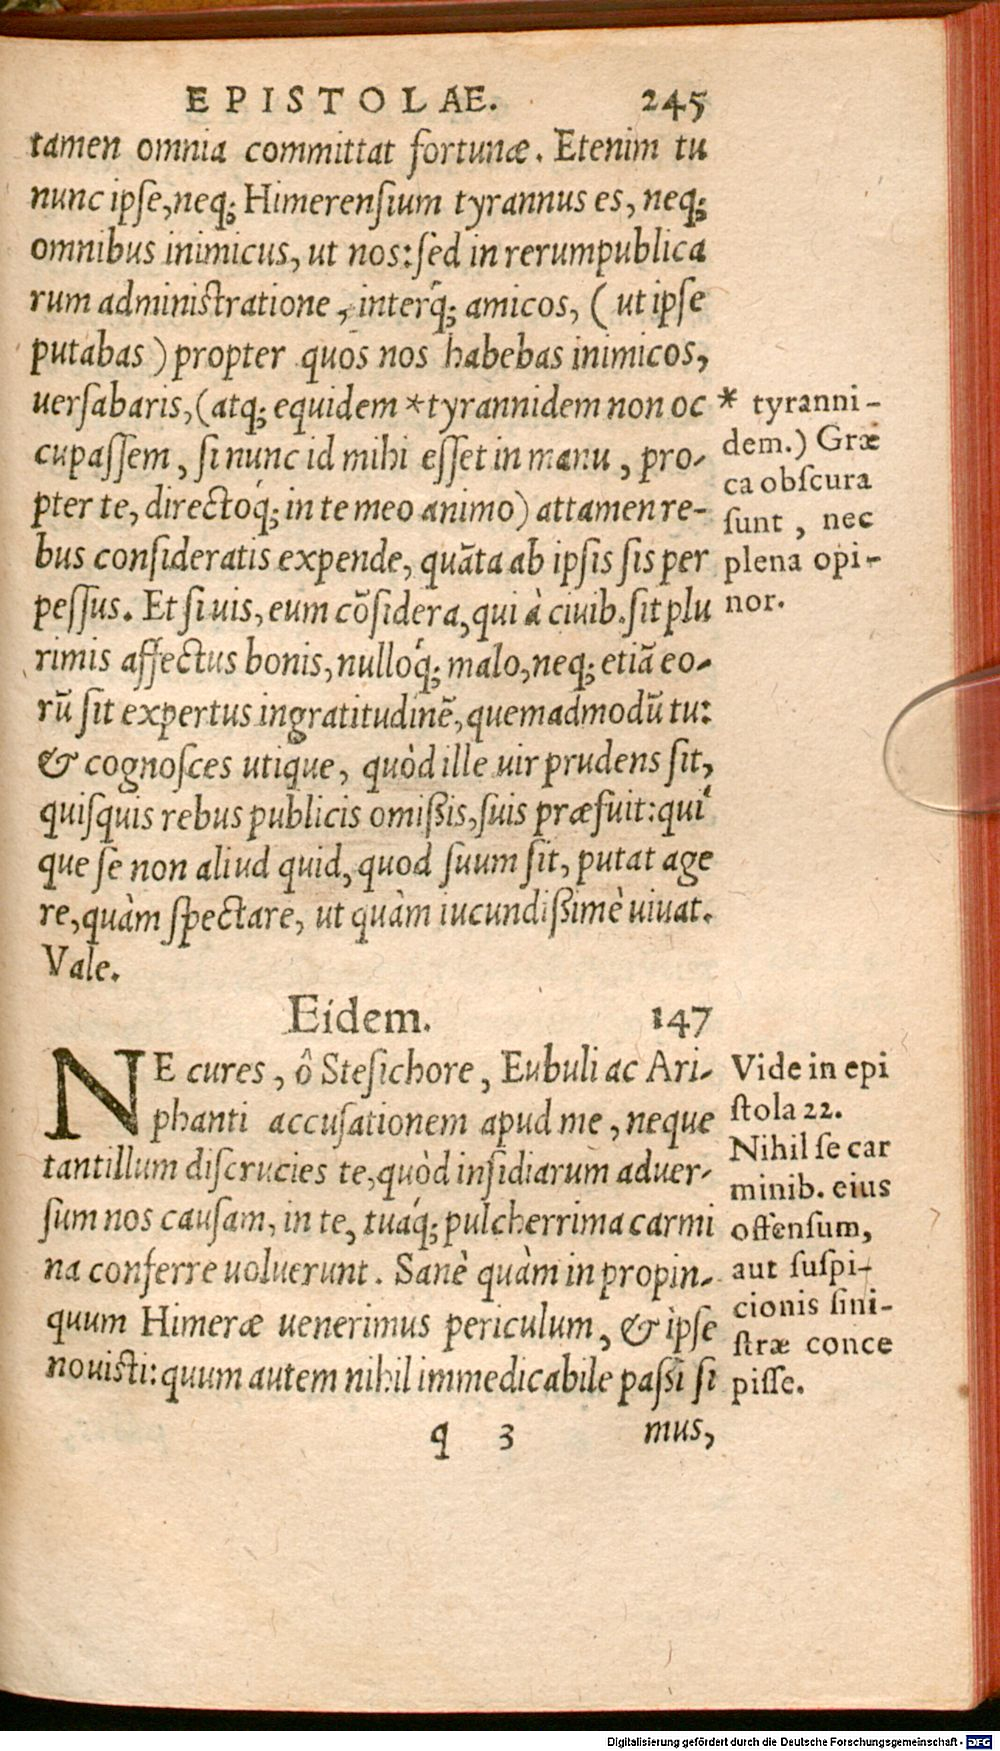 EPISTOLAE. 245
tamen omnia committat fortunæ. Etenim tu
nunc ipſe, neq; Himerenſium tyrannus es, neq;
omnibus inimicus, ut nos: ſed in rerumpublica
rum adminiſtratione, interq́; amicos, ( ut ipſe
putabas ) propter quos nos habebas inimicos,
uerſabaris, (atq; equidem *tyrannidem non oc
cupaſſem, ſi nunc id mihi eſſet in manu, pro-
pter te, directoq́; in te meo animo) attamen re-
bus conſideratis expende, quãta ab ipſis ſis per
peſſus. Et ſi uis, eum cõſidera, qui à ciuib. ſit plu
rimis affectus bonis, nulloq́; malo, neq; etiã eo-
rũ ſit expertus ingratitudinẽ, quemadmodũ tu:
& cognoſces utique, quòd ille uir prudens ſit,
quiſquis rebus publicis omiſsis, ſuis præfuit: qui
que ſe non aliud quid, quod ſuum ſit, putat age
re, quàm ſpectare, ut quàm iucundiſsimè uiuat.
Vale.
* tyranni-
dem.) Græ
ca obſcura
ſunt, nec
plena opi-
nor.
Eidem. 147
NE cures, ô Steſichore, Eubuli ac Ari-
phanti accuſationem apud me, neque
tantillum diſcrucies te, quòd inſidiarum aduer-
ſum nos cauſam, in te, tuaq́; pulcherrima carmi
na conferre uoluerunt. Sanè quàm in propin-
quum Himeræ uenerimus periculum, & ipſe
nouiſti: quum autem nihil immedicabile paſsi ſi
Vide in epi
ſtola 22.
Nihil ſe car
minib. eius
offenſum,
aut ſuſpi-
cionis ſini-
ſtræ conce
piſſe.
q 3 mus,
Digitalisierung gefördert durch die Deutsche Forschungsgemeinschaft - DFG